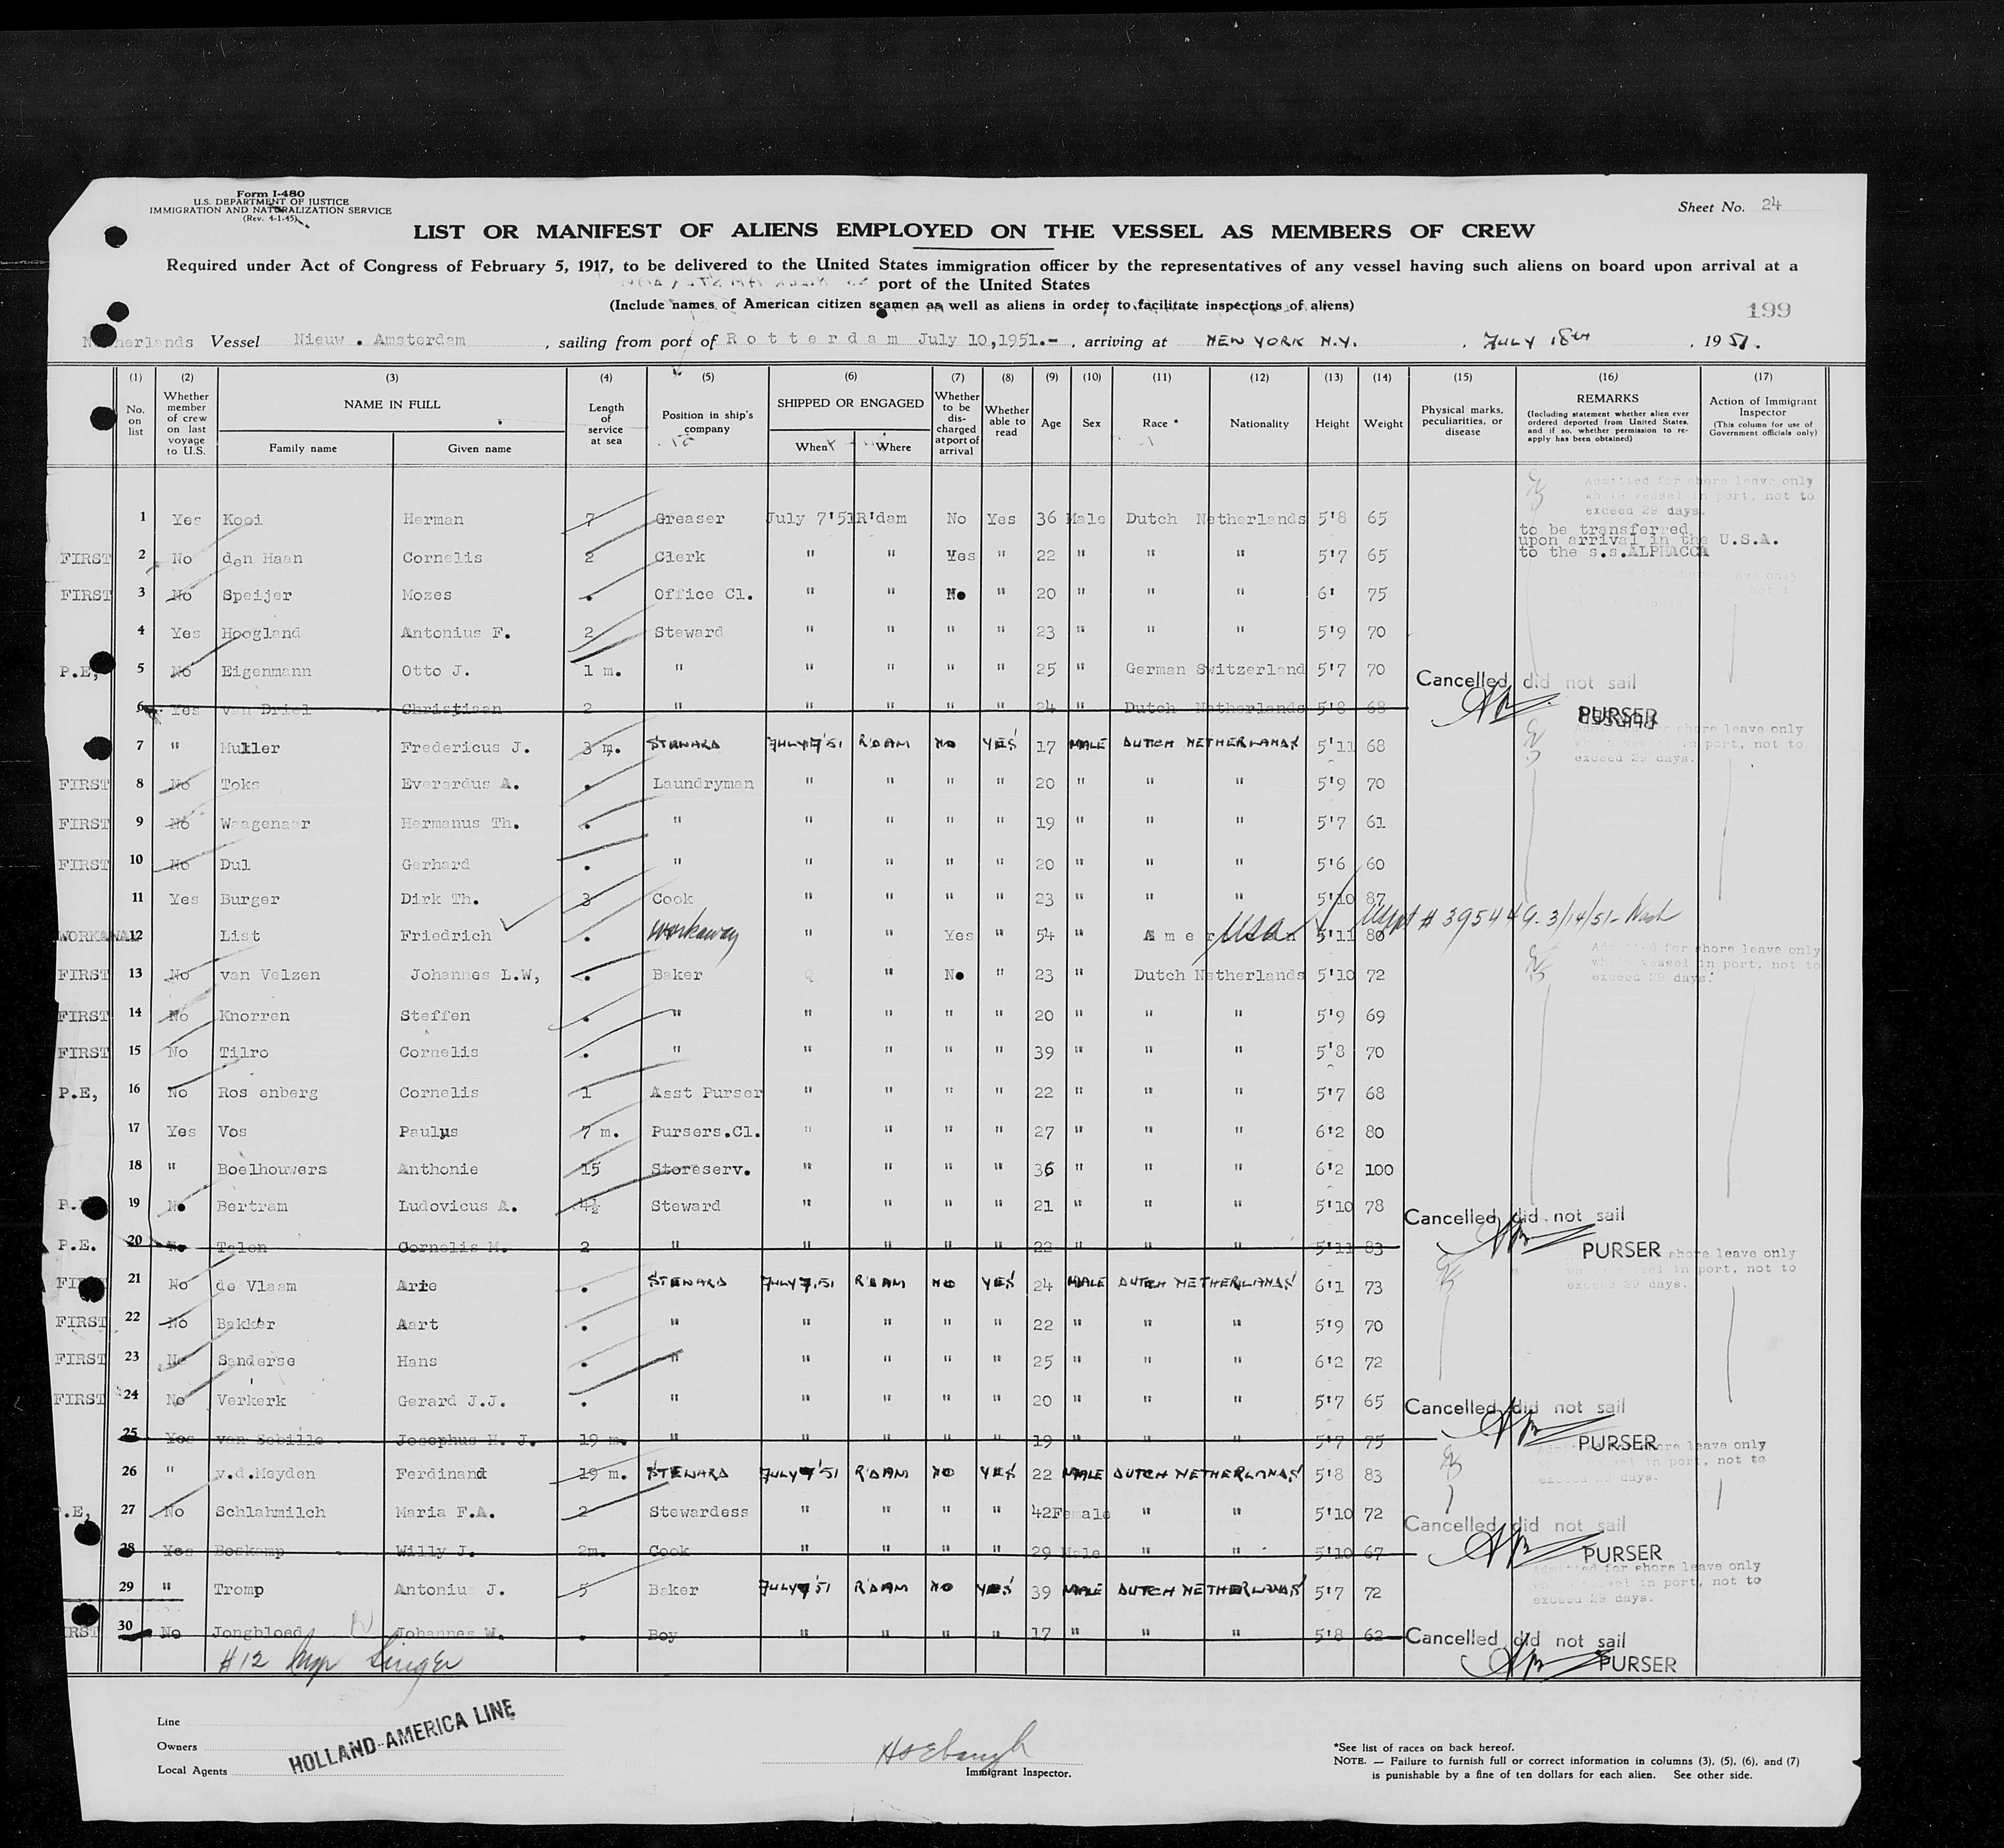 Form I-480
U.S. DEPARTMENT OF JUSTICE
IMMIGRATION AND NATURALIZATION SERVICE
(Rev. 4-1-45)
Sheet No. 24
LIST OR MANIFEST OF ALIENS EMPLOYED ON THE VESSEL AS MEMBERS OF CREW
Required under Act of Congress of February 5, 1917, to be delivered to the United States immigration officer by the representatives of any vessel having such aliens on board upon arrival at a
port of the United States
(Include names of American citizen seamen as well as aliens in order to facilitate inspections of aliens)
199
Netherlands Vessel Nieuw . Amsterdam , sailing from port of Rotterdam July 10,1951.- , arriving at NEW YORK N.Y. , JULY 18th , 1951.
(1) (2) (3) (4) (5) (6) (7) (8) (9) (10) (11) (12) (13) (14) (15) (16) (17)
No. on list Whether member of crew on last voyage to U.S. NAME IN FULL Family name Given name Length of service at sea Position in ship's company SHIPPED OR ENGAGED When Where Whether to be discharged at port of arrival Whether able to read Age Sex Race * Nationality Height Weight Physical marks, peculiarities, or disease REMARKS (Including statement whether alien ever ordered deported from United States, and if so, whether permission to re-apply has been obtained) Action of Immigrant Inspector (This column for use of Government officials only)
Admitted for shore leave only
while vessel in port, not to
exceed 29 days.
1 Yes Kooi Herman 7 Greaser July 7'51 R'dam No Yes 36 Male Dutch Netherlands 5'8 65
to be transferred
upon arrival in the U.S.A.
to the s.s.ALPHACCA
FIRST 2 No den Haan Cornelis 2 Clerk " " Yes " 22 " " " 5'7 65
FIRST 3 No Speijer Mozes . Office Cl. " " No " 20 " " " 6' 75
4 Yes Hoogland Antonius F. 2 Steward " " " " 23 " " " 5'9 70
P.E, 5 No Eigenmann Otto J. 1 m. " " " " " 25 " German Switzerland 5'7 70
Cancelled did not sail
6 Yes van Driel Christiaan 2 " " " " " 24 " Dutch Netherlands 5'8 68
PURSER
Admitted for shore leave only
while vessel in port, not to
exceed 29 days.
7 " Muller Fredericus J. 3 m. STEWARD JULY 7'51 R'DAM NO YES 17 MALE DUTCH NETHERLANDS 5'11 68
FIRST 8 No Toks Everardus A. . Laundryman " " " " 20 " " " 5'9 70
FIRST 9 No Waagenaar Hermanus Th. . " " " " " 19 " " " 5'7 61
FIRST 10 No Dul Gerhard . " " " " " 20 " " " 5'6 60
11 Yes Burger Dirk Th. 3 Cook " " " " 23 " " " 5'10 87
WORKAWAY 12 List Friedrich . Workaway " " Yes " 54 " American USA 5'11 80 # 395449-3/14/51-Wash
Admitted for shore leave only
while vessel in port, not to
exceed 29 days.
FIRST 13 No van Velzen Johannes L.W, . Baker " " No " 23 " Dutch Netherlands 5'10 72
FIRST 14 No Knorren Steffen . " " " " " 20 " " " 5'9 69
FIRST 15 No Tilro Cornelis . " " " " " 39 " " " 5'8 70
P.E, 16 No Ros enberg Cornelis 1 Asst Purser " " " " 22 " " " 5'7 68
17 Yes Vos Paulus 7 m. Pursers.Cl. " " " " 27 " " " 6'2 80
18 " Boelhouwers Anthonie 15 Storeserv. " " " " 36 " " " 6'2 100
P.E 19 No Bertram Ludovicus A. 4½ Steward " " " " 21 " " " 5'10 78
Cancelled did not sail
P.E. 20 No Talen Cornelis M. 2 " " " " " 22 " " " 5'11 83
PURSER
shore leave only
while vessel in port, not to
exceed 29 days.
FIRST 21 No de Vlaam Arie . STEWARD JULY 7,51 R'DAM NO YES 24 MALE DUTCH NETHERLANDS 6'1 73
FIRST 22 No Bakker Aart . " " " " " 22 " " " 5'9 70
FIRST 23 No Sanderse Hans . " " " " " 25 " " " 6'2 72
FIRST 24 No Verkerk Gerard J.J. . " " " " " 20 " " " 5'7 65
Cancelled did not sail
25 Yes van Sebille Josephus H. J. 19 m. " " " " " 19 " " " 5'7 75
PURSER
Admitted for shore leave only
while vessel in port, not to
exceed 29 days.
26 " v.d.Meyden Ferdinand 19 m. STEWARD JULY 7'51 R'DAM NO YES 22 MALE DUTCH NETHERLANDS 5'8 83
.E, 27 No Schlahmilch Maria F.A. 2 Stewardess " " " " 42 Female " " 5'10 72
Cancelled did not sail
28 Yes Boskamp Willy J. 2m. Cook " " " " 29 Male " " 5'10 67
PURSER
Admitted for shore leave only
while vessel in port, not to
exceed 29 days.
29 " Tromp Antonius J. 5 Baker JULY 7'51 R'DAM NO YES 39 MALE DUTCH NETHERLANDS 5'7 72
FIRST 30 No Jongbloed Johannes W. . Boy " " " " 17 " " " 5'8 62
Cancelled did not sail
PURSER
#12 Singer
Line
Owners
Local Agents
HOLLAND-AMERICA LINE
Immigrant Inspector.
*See list of races on back hereof.
NOTE. — Failure to furnish full or correct information in columns (3), (5), (6), and (7)
is punishable by a fine of ten dollars for each alien. See other side.